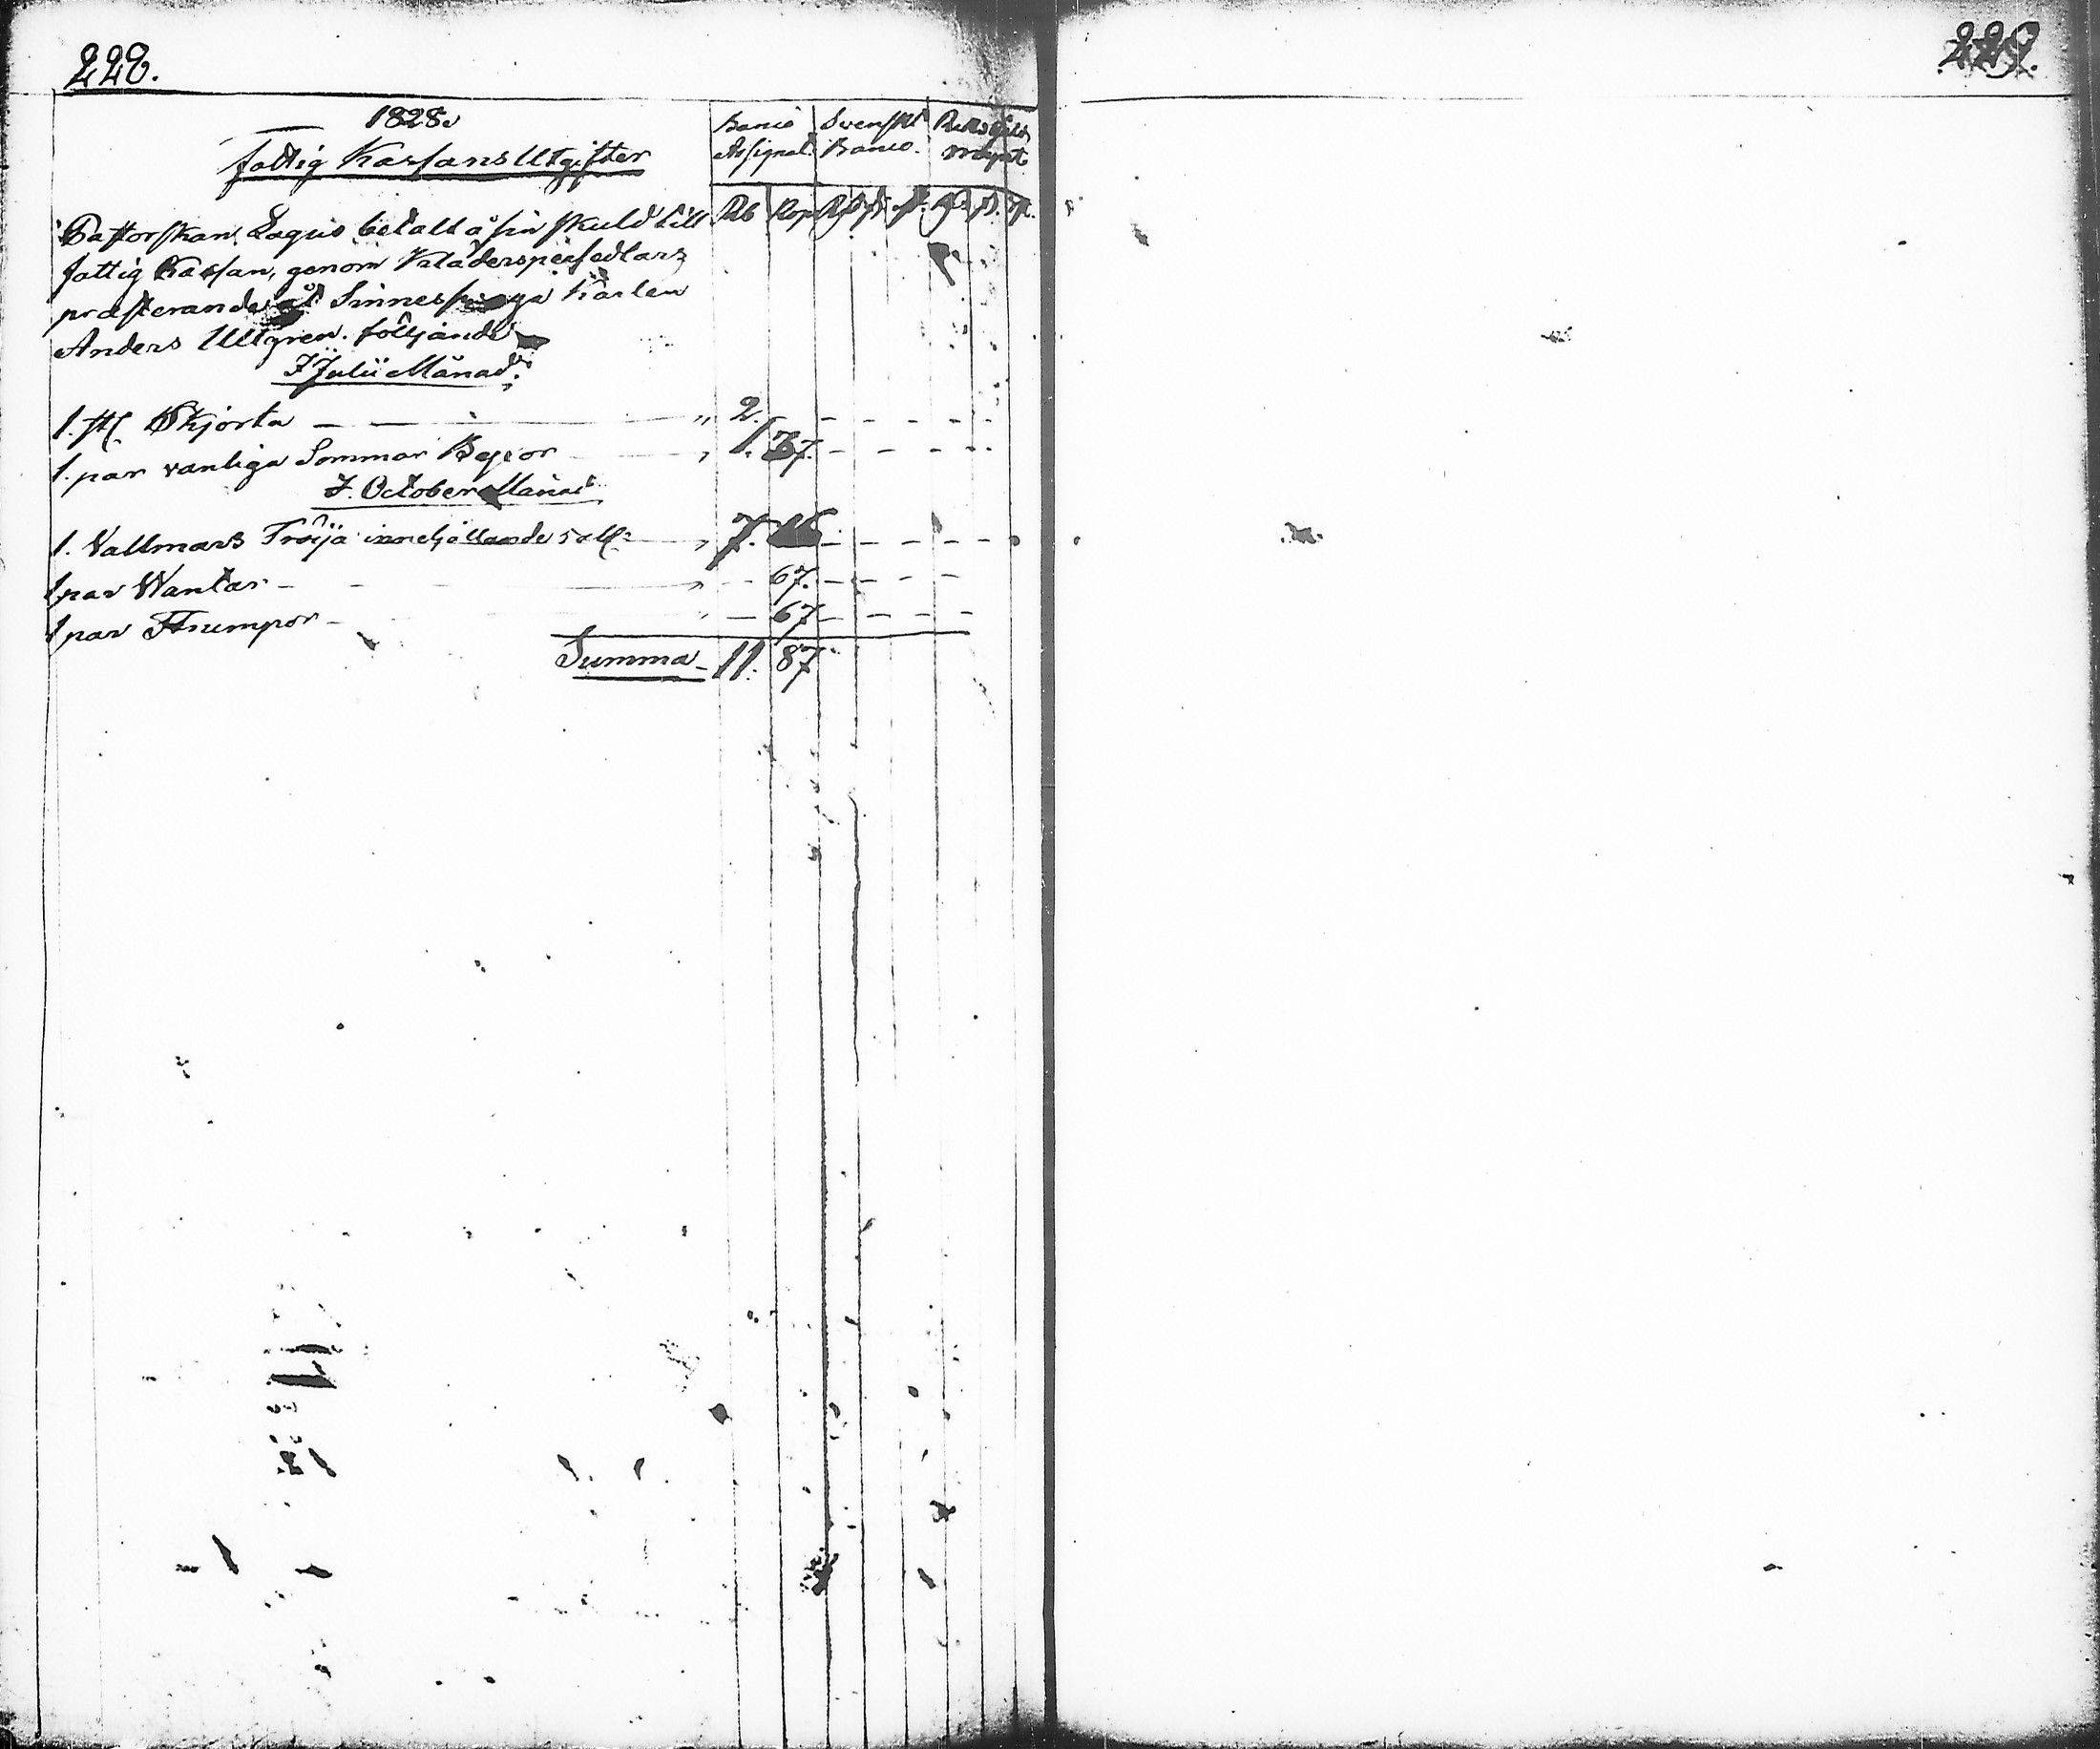 228.
229.
1828.
Fattig Kassans Utgifter
Banco Assignat. Svenskt Banco. Riksgälds
Rb Kop
Pastorskan Lagus betalt å sin skuld till
fattig Kassan, genom Kladerspersedlars
præsterande åt Sinnessvaga Karlen
Anders Ullgren. följande
I Julii Månad.
1. st. Skjorta — — — " 2. — — — — — —
1. par vanliga Sommar Byxor — " 1. 37. — — — — —
I. October Månad
1. Vallmars Tröja innehållande 5 all: — " 7. 16 — — — — —
1 par Wantar — — " — 67. — — — — —
1 par Strumpor — — " — 67 — — — — —
Summa — 11. 87